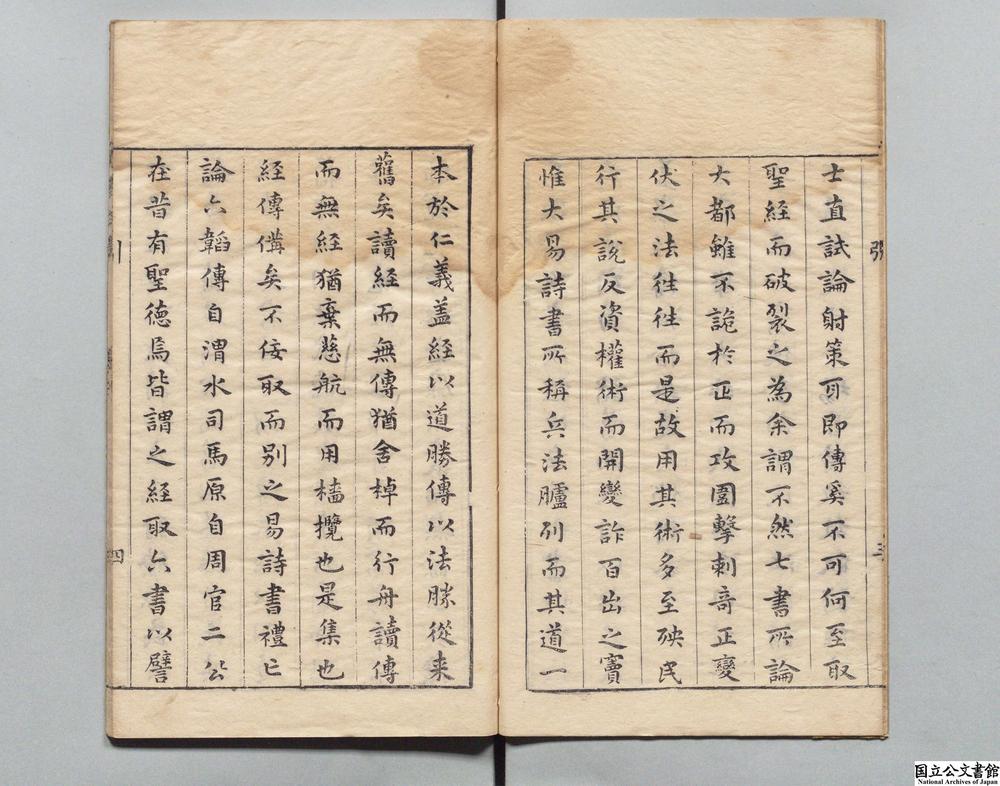 士直試論射策耳即傳奚不可何至取
聖経而破裂之為余謂不然七書所論
大都雖不詭於正而攻圍擊刺奇正變
伏之法徃徃而是故用其術多至殃民
行其說反資權術而開變詐百出之竇
惟大易詩書所稱兵法臚列而其道一
本於仁義盖経以道勝傳以法勝從来
舊矣讀経而無傳猶舍棹而行舟讀傳
而無経猶棄慈航而用檣攬也是集也
経傳備矣不佞取而别之易詩書禮已
論六韜傳自渭水司馬原自周官二公
在昔有聖德焉皆謂之経取六書以譬
四
国立公文書館
National Archives of Japan